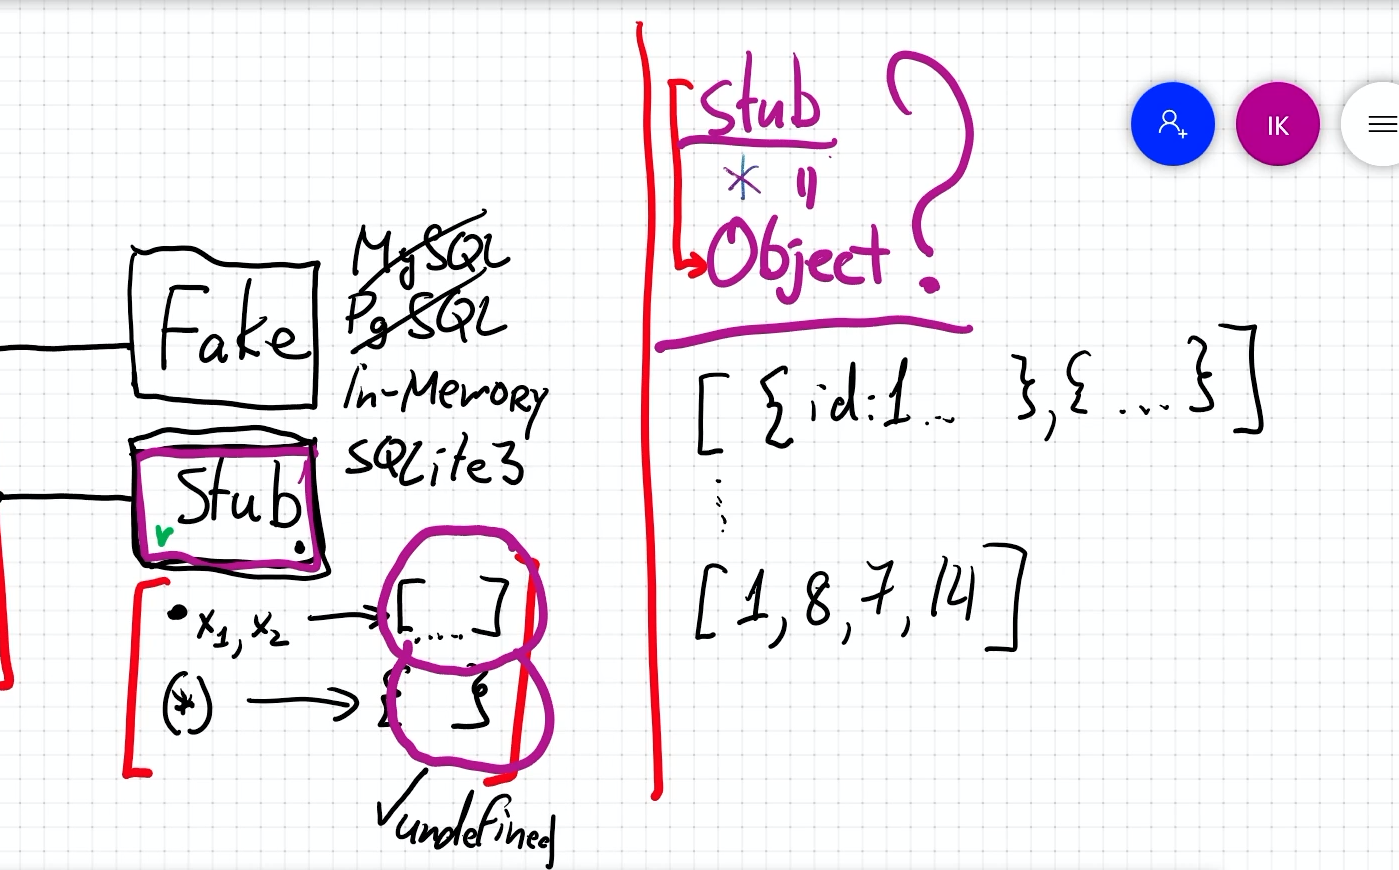 Fake
MySQL
PgSQL
In-Memory
SQLite3
Stub
• x1, x2 → [....]
(*) → { }
undefined
Stub
* "
Object ?
[ {id:1... }, { ....} ]
⋮
[1, 8, 7, 14]
IK